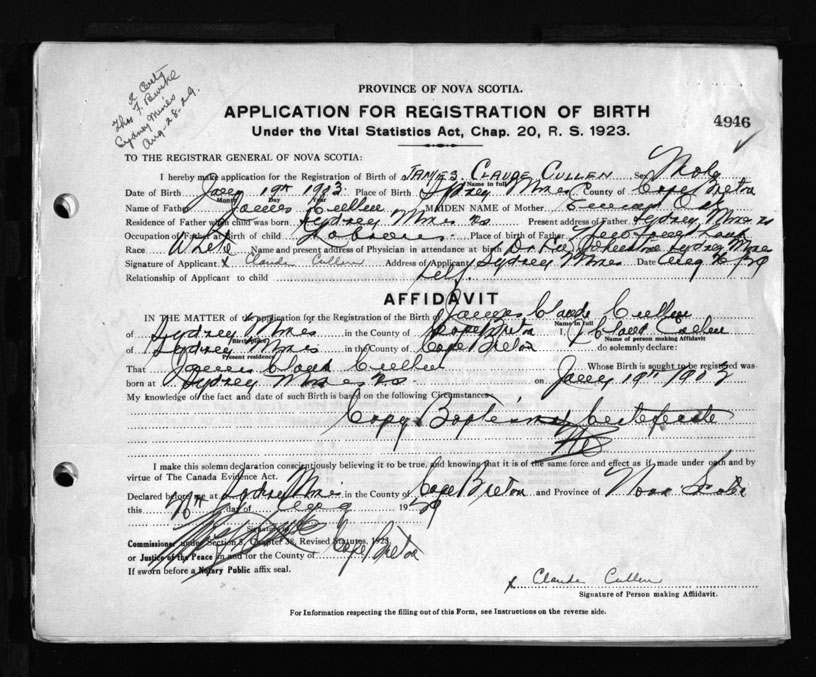 Thos F. Burke
Sydney Mines
Aug-28-29.
PROVINCE OF NOVA SCOTIA.
APPLICATION FOR REGISTRATION OF BIRTH
4946
Under the Vital Statistics Act, Chap. 20, R. S. 1923.
TO THE REGISTRAR GENERAL OF NOVA SCOTIA:
I hereby make application for the Registration of Birth of JAMES CLAUDE CULLEN Sex Male
Name in full
Date of Birth Jany 19th Place of Birth Sydney Mines County of Cape Breton
Month Day Year
Name of Father James Cullen MAIDEN NAME of Mother
Residence of Father when child was born Sydney Mines NS Present address of Father Sydney Mines NS
Occupation of Father at Birth of child Place of birth of Father
Race White Name and present address of Physician in attendance at birth Sydney Mines
Signature of Applicant x Claude Cullen Address of Applicant Sydney Mines Date Aug
Relationship of Applicant to child self
AFFIDAVIT
IN THE MATTER of an application for the Registration of the Birth of James Claude Cullen
Name in full
of Sydney Mines in the County of Cape Breton I, Claude Cullen
Birthplace
Name of person making Affidavit
of Sydney Mines in the County of Cape Breton do solemnly declare:
Present residence
That James Claude Cullen Whose Birth is sought to be registered was
born at Sydney Mines NS on Jany 19th
My knowledge of the fact and date of such Birth is based on the following Circumstances
Copy Baptismal Certificate
I make this solemn declaration conscientiously believing it to be true, and knowing that it is of the same force and effect as if made under oath and by
virtue of The Canada Evidence Act.
Declared before me at Sydney Mines in the County of Cape Breton and Province of Nova Scotia
this day of Aug 19
Signature
Commissioner under Section 3, Chapter 38, Revised Statutes, 1923.
or Justice of the Peace in and for the County of Cape Breton
If sworn before a Notary Public affix seal.
x Claude Cullen
Signature of Person making Affidavit.
For Information respecting the filling out of this Form, see Instructions on the reverse side.